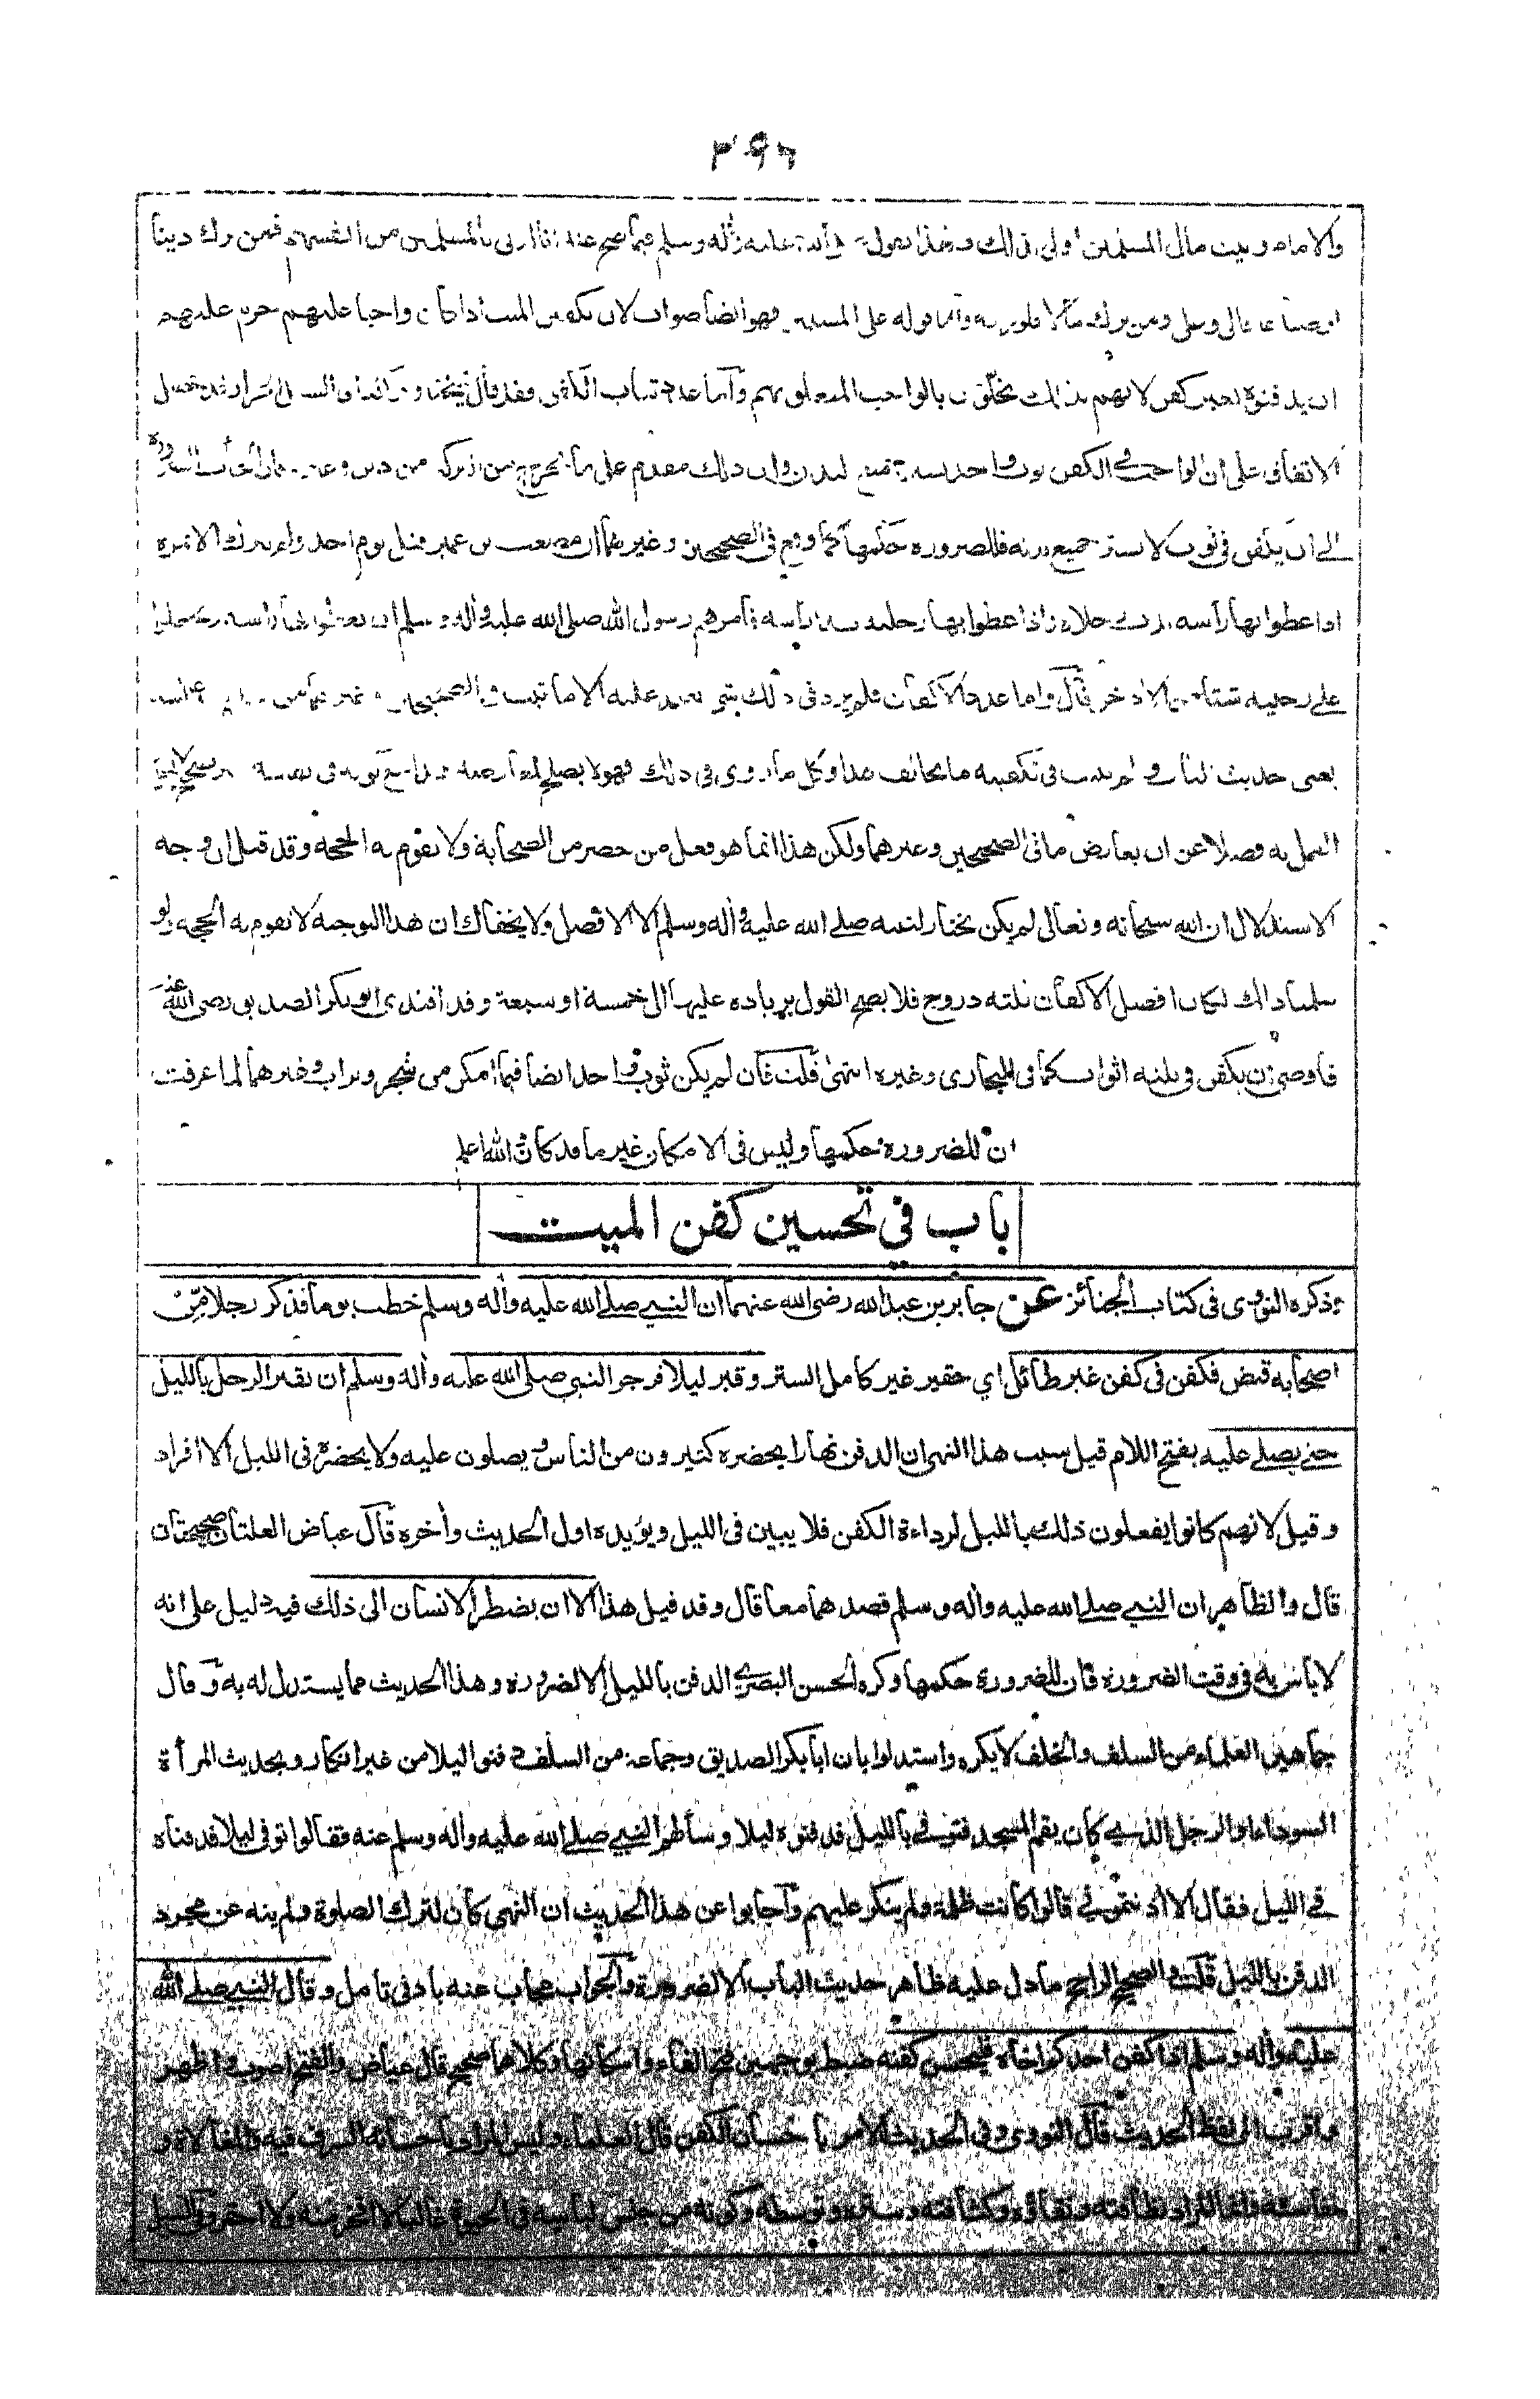 ٣٩٦
والامام وبيت مال المسلمين اولى بذلك ولهذا يقول صلى الله عليه وآله وسلم فيما صح عنه انا اولى بالمسلمين من انفسهم فمن ترك دينا
او ضياعا فالي وعلي ومن ترك مالا فلورثته واما قوله على المسلمين فهو ايضا صواب لان تكفين الميت اذا كان واجبا عليهم حرم عليهم
ان يدفنوه بغير كفن لانهم بذلك يخلّون بالواجب المتعلق بهم وأما عدم ثياب الكافن وفقد قال شيخنا
الاتفاق على ان الواجب في الكفن ثوب واحد يستر جميع البدن وان ذلك مقدم على ما يخرج من تركه من دين وغيره
الى ان يكفن في ثوب لا يستر جميع بدنه فللضرورة حكمها كما وقع في الصحيحين وغيرهما ان مصعب بن عمير قتل يوم احد ولم يترك الا نمرة
اذا غطوا بها رأسه بدت رجلاه واذا غطوا بها رجليه بدا رأسه فأمرهم رسول الله صلى الله عليه وآله وسلم ان يغطوا بها رأسه ويجعلوا
على رجليه شيئا من الاذخر قال واما عدد الاكفان فلم يرد في ذلك شيء يعتمد عليه الا ما ثبت في الصحيحين وغيرهما من
يعني حديث الباب ولم يثبت في تكفينه ما يخالف هذا وكل ما روي في ذلك فهو لا يصلح
العمل به فضلا عن ان يعارض ما في الصحيحين وغيرهما ولكن هذا انما هو فعل من حضر من الصحابة ولا يقوم به الحجة وقد قيل ان وجه
الاستدلال ان الله سبحانه وتعالى لم يكن يختار لنبيه صلى الله عليه وآله وسلم الا الافضل ولا يخفاك ان هذا التوجيه لا تقوم به الحجة ولو
سلمنا ذلك لكان افضل الاكفان ثلثة دروج فلا يصح القول بزيادة عليها الى خمسة او سبعة وقد اقتدى ابو بكر الصديق رضي الله عنه
فاوصى ان يكفن في ثلثة اثواب كما في البخاري وغيره انتهى قلت فان لم يكن ثوب واحد ايضا فيما امكن من شجر وتراب وغيرهما لما عرفت
ان للضرورة حكمها وليس في الامكان غير ما قد كان والله اعلم
باب في تحسين كفن الميت
وذكره النووي في كتاب الجنائز عن جابر بن عبد الله رضي الله عنهما ان النبي صلى الله عليه وآله وسلم خطب يوما فذكر رجلا من
اصحابه قبض فكفن في كفن غير طائل اي حقير غير كامل الستر وقبر ليلا فزجر النبي صلى الله عليه وآله وسلم ان يقبر الرجل بالليل
حتى يصلى عليه بفتح اللام قيل سبب هذا النهي ان الدفن نهارا يحضره كثيرون من الناس ويصلون عليه ولا يحضره في الليل الا افراد
وقيل لانهم كانوا يفعلون ذلك بالليل لرداءة الكفن فلا يبين في الليل ويؤيده اول الحديث وأخره قال عياض العلتان صحيحتان
قال والظاهر ان النبي صلى الله عليه وآله وسلم قصدهما معا قال وقد قيل هذا الا ان يضطر الانسان الى ذلك فيه دليل على انه
لا بأس به في وقت الضرورة فان للضرورة حكمها وكره الحسن البصري الدفن بالليل الا لضرورة وهذا الحديث مما يستدل له به وقال
جماهير العلماء من السلف والخلف لا يكره واستدلوا بان ابا بكر الصديق وجماعة من السلف دفنوا ليلا من غير انكار وبحديث المرأة
السوداء او الرجل الذي كان يقم المسجد فتوفي بالليل فدفنوه ليلا وسألهم النبي صلى الله عليه وآله وسلم عنه فقالوا توفي ليلا فدفناه
في الليل فقال الا آذنتموني قالوا كانت ظلمة ولم ينكر عليهم وأجابوا عن هذا الحديث ان النهي كان لترك الصلوة ولم ينه عن مجرد
الدفن بالليل قلت والصحيح الراجح ما دل عليه ظاهر حديث الباب الا لضرورة والجواب مجاب عنه بأدنى تأمل وقال النبي صلى الله
عليه وآله وسلم اذا كفن احدكم اخاه فليحسن كفنه ضبط بوجهين فتح الفاء واسكانها وكلاهما صحيح قال عياض والفتح اصوب واظهر
واقرب الى لفظ الحديث قال النووي وفي الحديث الامر باحسان الكفن قال العلماء وليس المراد باحسانه السرف فيه والمغالاة و
نفاسته وانما المراد نظافته ونقاؤه وكثافته وستره وتوسطه وكونه من جنس لباسه في الحيوة غالبا لا افخر منه ولا احقر